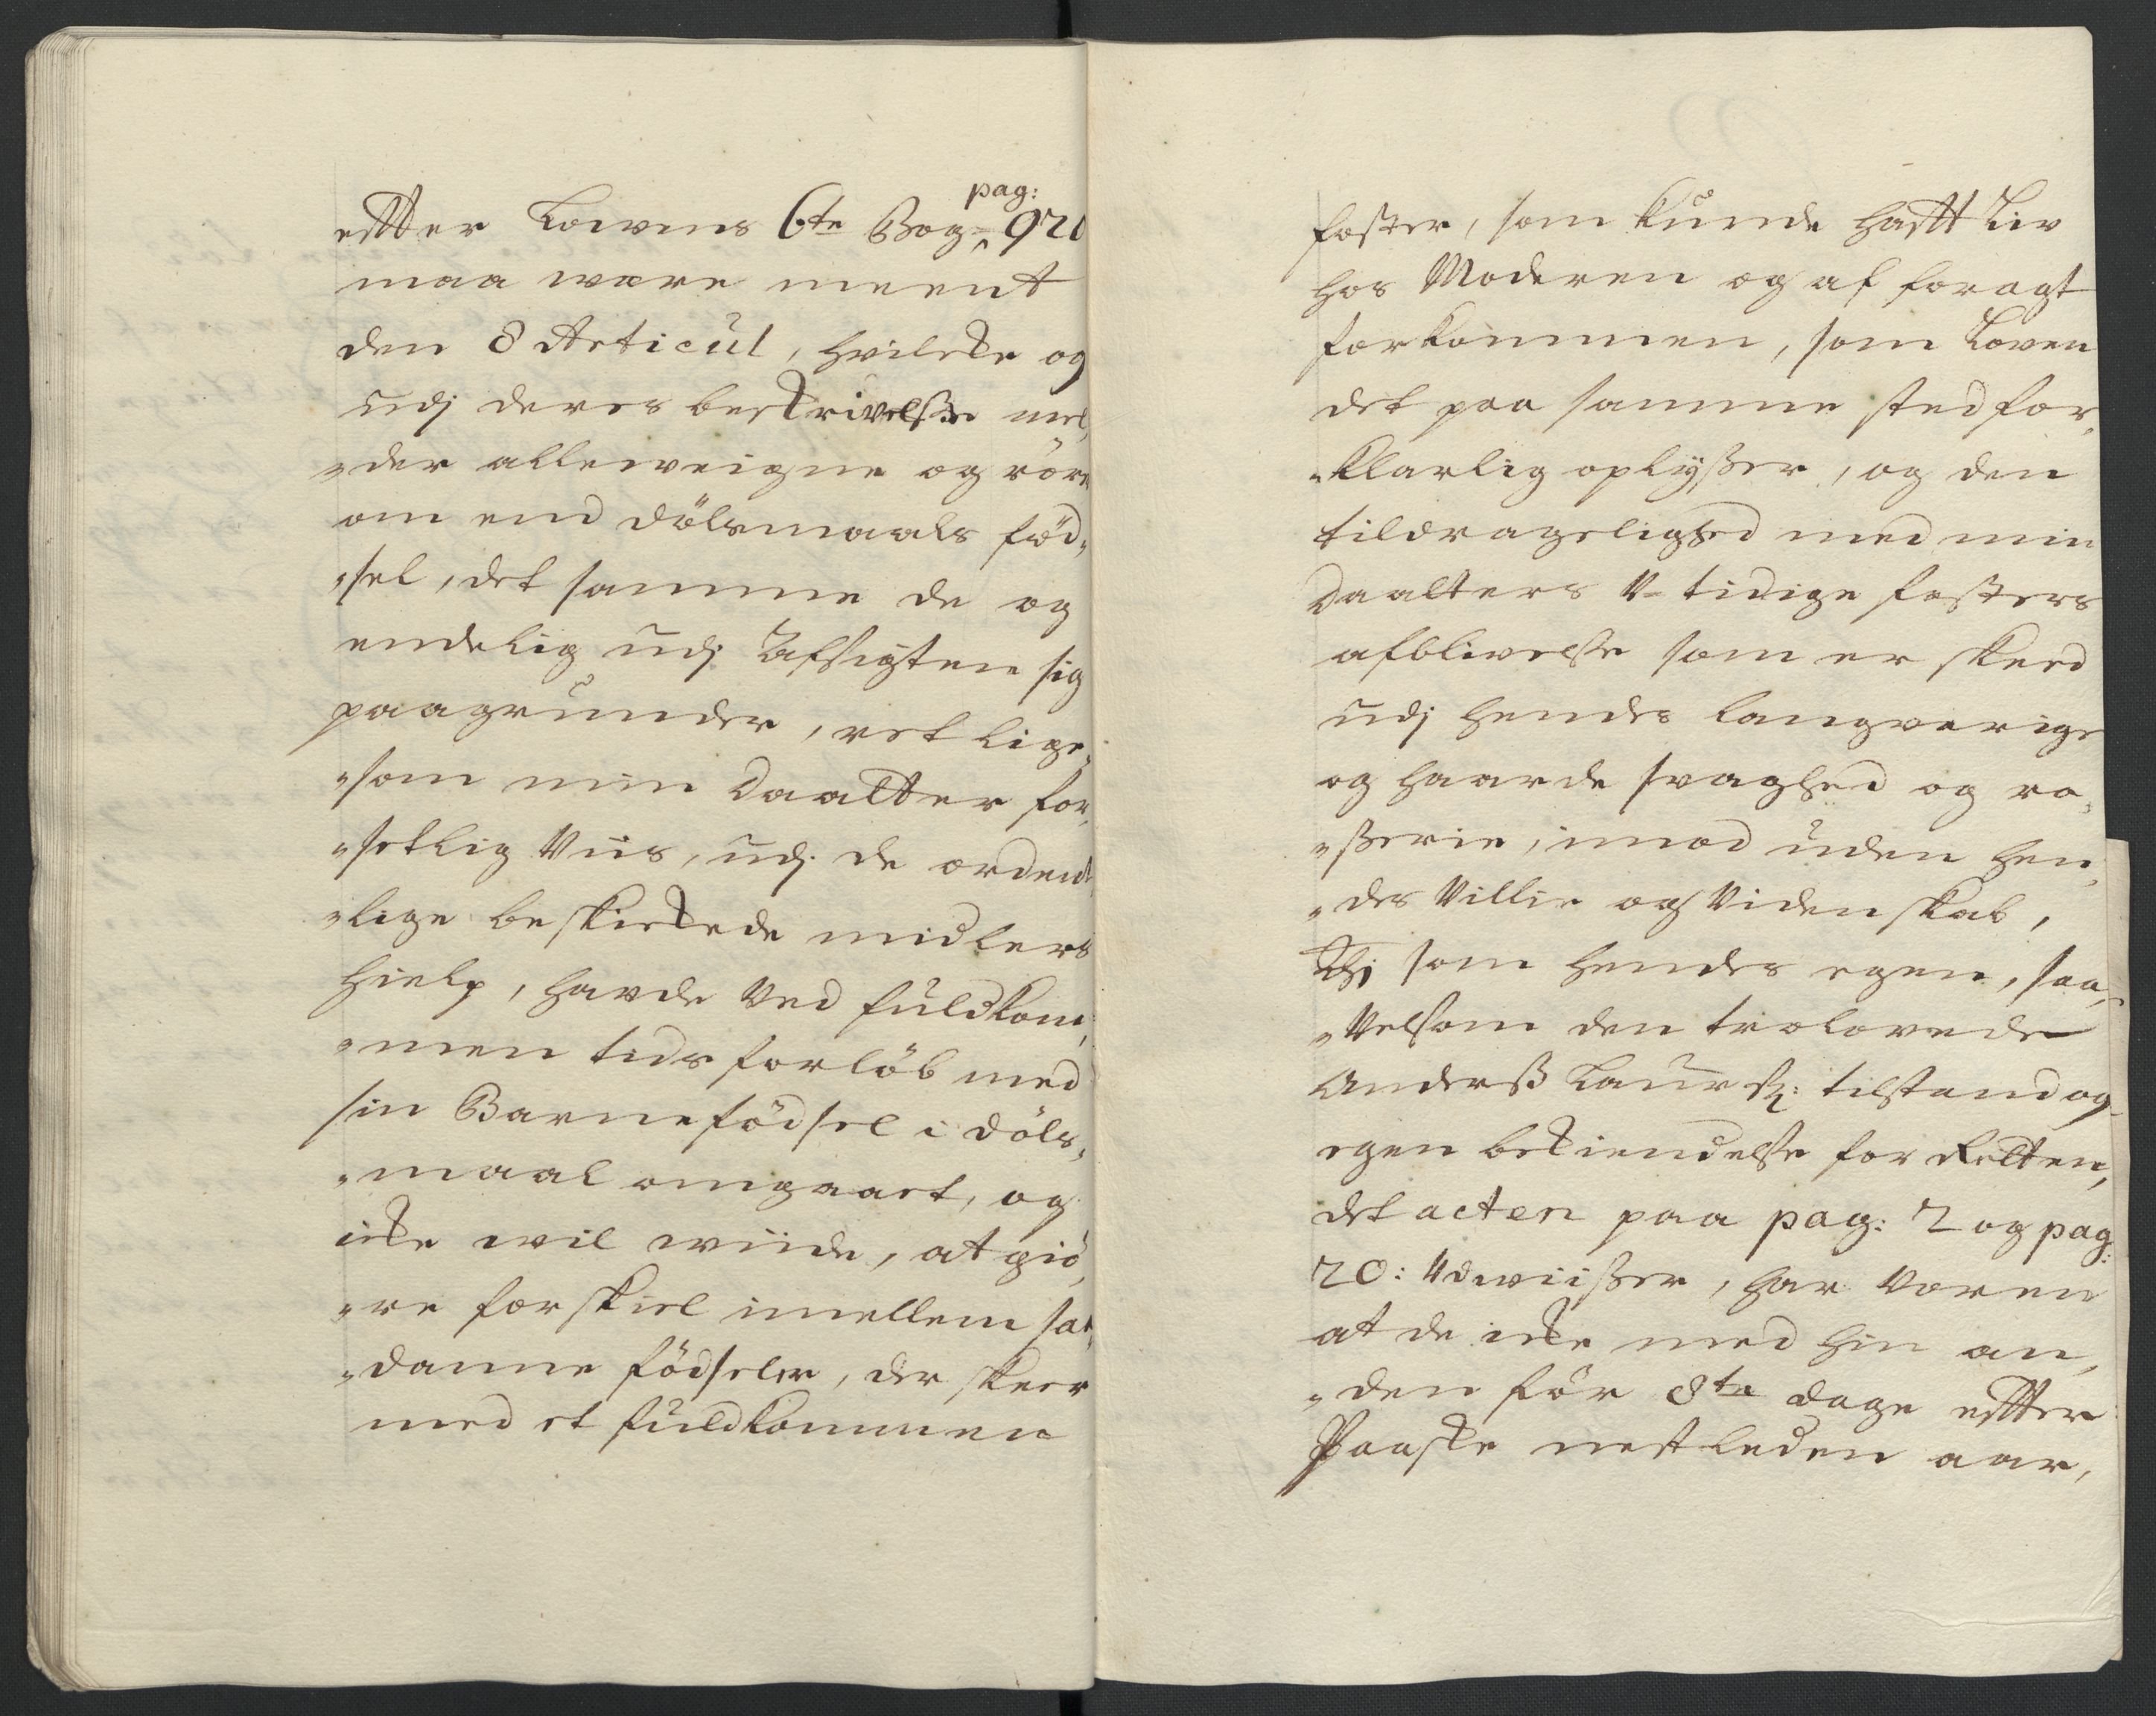 efftter Lowens 6te Bog pag: 920
maa være meent
den 8 Articul, hvilcke og
udj deres beskrivelsse mel„
„der alleweigne og rörer
om end dölsmaals föd„
„sel, det samme de og
endelig udj Afsigten sig
paagrunder, ret lige„
„som min Daatter for„
„setlig Viis, udj de ordent„
„lige beskickede midlers
Hielp, havde Ved fuldkom„
„men tids forlöb med
sin Barnefödsel i döls„
„maal omgaaet, og
icke wil wiide, at giö„
„re forskiel imellem saa„
„danne födseler, der skeer
med et fuldkommen
foster, som kunde hafft Liv
hos Moderen og af foragt
forkommen, som Loven
det paa samme sted for„
„klarlig oplyßer, og den
tildragelighed med min
Daatters U-tidige fosters
afblivelsse som er skeed
udj hendes langvarige
og haarde svaghed og ra„
„ßerie, imod uden hen„
„des Villie og Videnskab,
Thj som hendes egen, saa„
„Velsom den trolovede
Anderß Laurß: tilstand og
egen bekiendelsse for Retten,
det acten paa pag: 2 og pag:
20: Udwiißer, har Varen
at de icke med hin an„
„den för 8te dage efftter
Paaske nestleden aar,